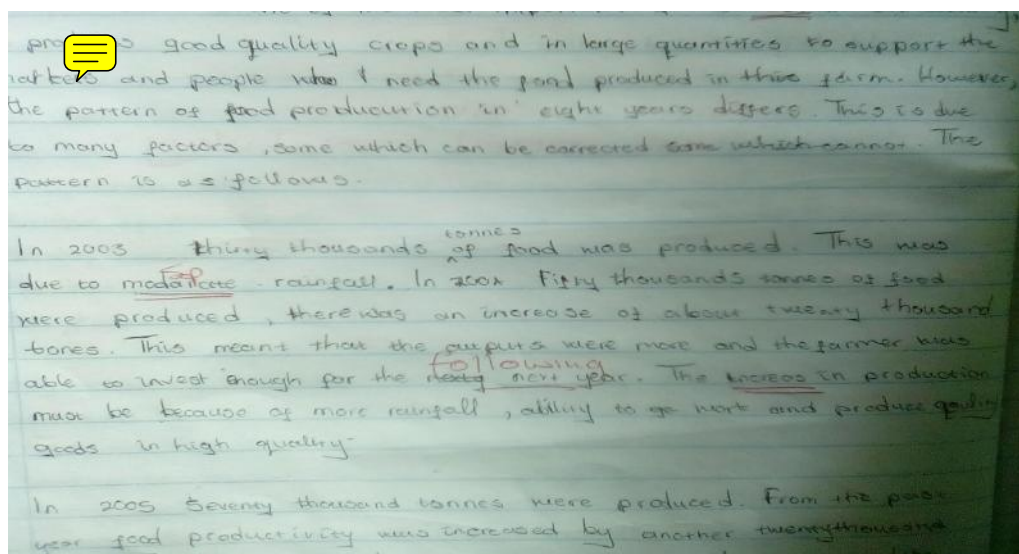 good quality crops and in large quantities to support the
and people who need the food produced in this farm. However,
the pattern of food producution in eight years differs. This is due
to many factors, some which can be corrected some which cannot. The
pattern is as follows.
In 2003 thirty thousands tonnes of food was produced. This was
due to rainfall. In 2004 Fifty thousands tonnes of food
were produced, there was an increase of about twenty thousand
tones. This meant that the outputs were more and the farmer was
able to invest enough for the next year. following The increas in production
must be because of more rainfall, ability to go work and produce
goods in high quality.
In 2005 Seventy thousand tonnes were produced. From the past
year food productivity was increased by another twenty thousand